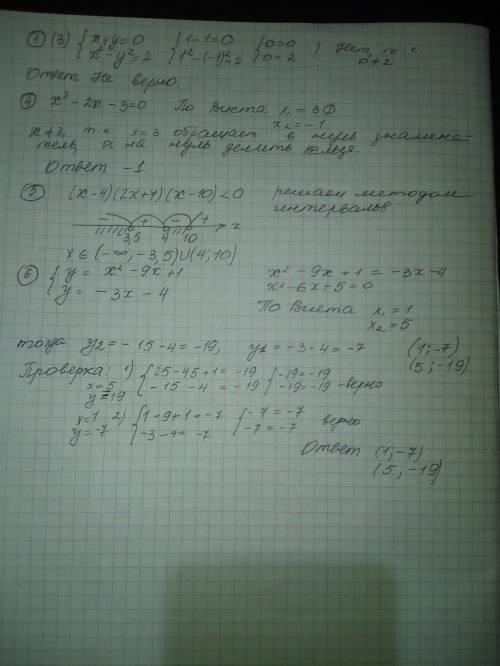 ① (3) { x+y=0 { 1-1=0 { 0=0 ) Нет, т.к
x²-y²=2 1²-(-1)²=2 0=2 0≠2
Ответ Не верно.
④ x²-2x-3=0 По Виета x₁=3∅
x₂=-1
x≠3, т.к. x=3 обращает в нуль знамена-
тель, а на нуль делить нельзя.
Ответ -1.
⑤ (x-4)(2x+7)(x-10)<0 решаем методом
интервалов
- + - + x
3,5 4 10
x∈(-∞; -3,5)∪(4; 10)
⑥ { y = x²-9x+1 x²-9x+1 = -3x-4
y = -3x-4 x²-6x+5=0
По Виета x₁=1
x₂=5
тогда y₂=-15-4=-19, y₁=-3-4=-7 (1; -7)
(5; -19)
Проверка: 1) { 25-45+1=-19 { -19=-19
x=5 -15-4=-19 -19=-19 -верно
y=-19
x=1 2) { 1-9+1=-7 { -7=-7 верно
y=-7 -3-4=-7 -7=-7
Ответ (1; -7)
(5; -19)